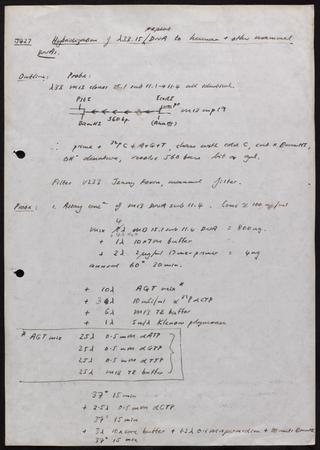 repeat
J427 Hybridization of λ33.15/DNA to human + other mammal
DNAs.
Outline: Probe:
λ33 M13 clones sub 11.1 → 11.4 all identical
PstI EcoRI
560 bp M13 mp19
BamHI
∴ prime + ³²P C + A+G+T, chase with cold C, cut BamHI,
OH⁻ denature, resolve 560 base bit on gel.
Filter V233 mammal filter.
Probe: 1. Assay of M13 DNA sub 11.4. Conc ≈ 100 µg/ml
4
mix λ M13 15.1 sub 11.4 DNA = 400 ng.
+ 1λ 10 x TM buffer
+ 2λ 2 µg/ml 17mer primer = 4 ng
anneal 60° 30 min.
+ 10λ AGT mix *
+ 3λ 10 mCi/ml α³²P dCTP
+ 6λ M13 TE buffer
+ 1λ 5u/λ Klenow polymerase
* AGT mix 25λ 0.5 mM dATP
25λ 0.5 mM dGTP
25λ 0.5 mM dTTP
25λ M13 TE buffer
37° 15 min
+ 2.5λ 0.5 mM dCTP
37° 15 min
+ 3λ 10 x buffer + 0.1 M spermidine + BamHI
37° 15 min